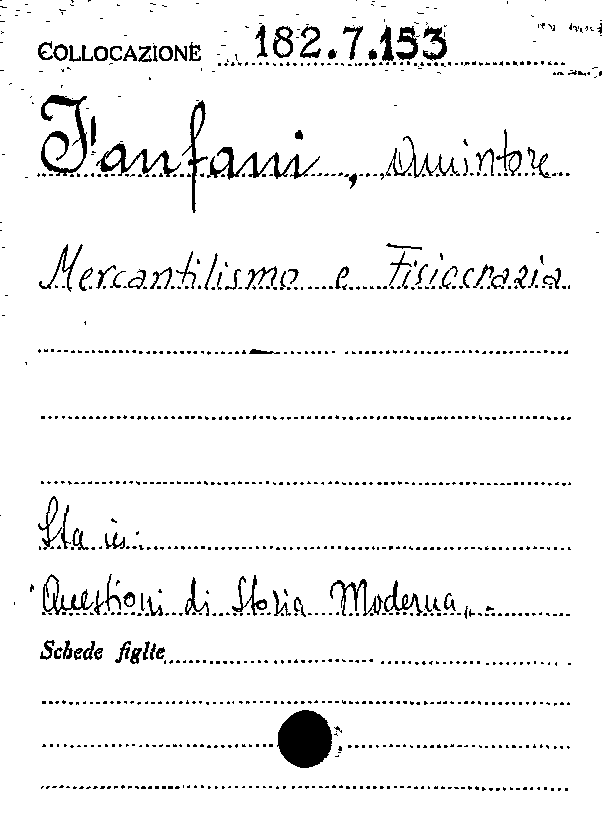 COLLOCAZIONE 182.7.153
Fanfani, Amintore
Mercantilismo e Fisiocrazia
Sta in:
"Questioni di Storia Moderna".
Schede figlie